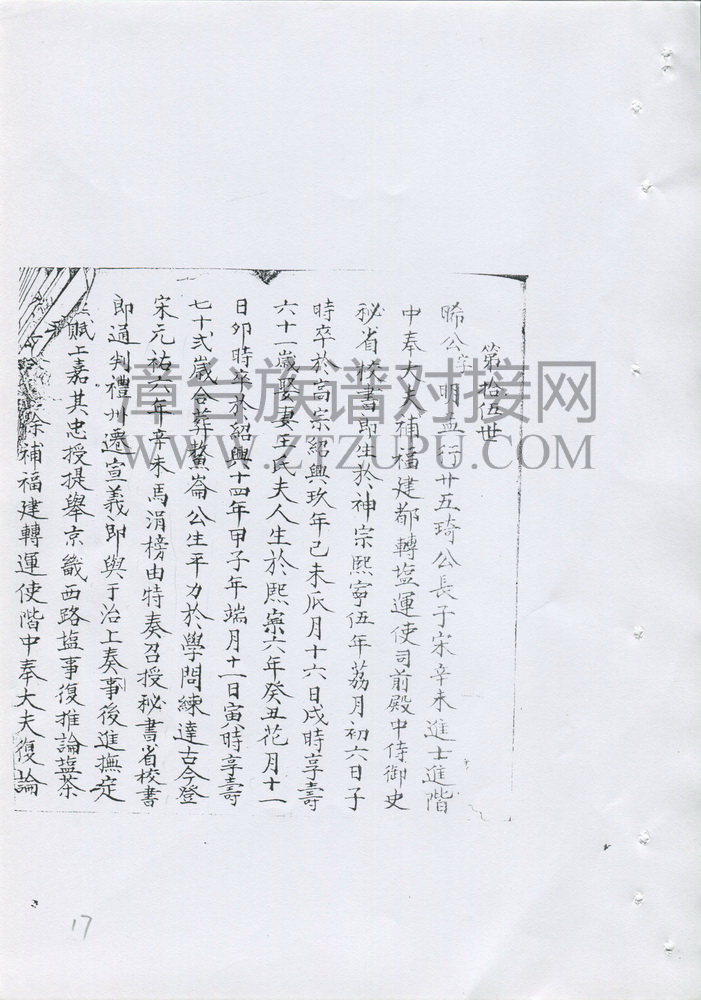 第拾伍世
晞公字明孟行廿五琦公長子宋辛未進士進階
中奉大夫補福建都轉塩運使司前殿中侍御史
秘省校書郎生於神宗熙寧伍年荔月初六日子
時卒於高宗紹興玖年己未瓜月十六日戌時享壽
六十一歲娶妻王氏夫人生於熙寧六年癸丑花月十一
日卯時卒於紹興十四年甲子年端月十一日寅時享壽
七十弍歲合葬鰲崙公生平力於學問練達古今登
宋元祐六年辛未馬涓榜由特奏召授秘書省校書
郎通判禮州遷宣義郎與于治上奏事後進撫定
賦上嘉其忠授提舉京畿西路塩事復推論塩茶
除補福建轉運使階中奉大夫復論
章台族谱对接网
WWW.ZTZUPU.COM
17